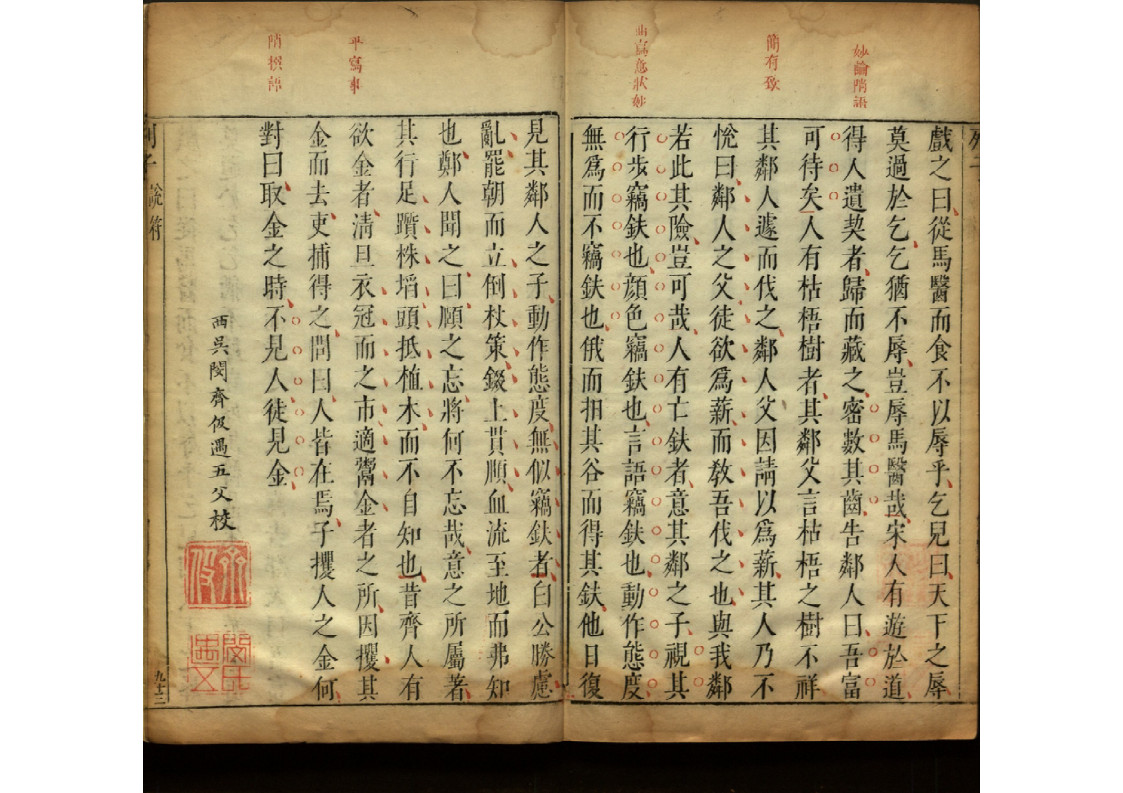 簡有致
戲之曰從馬醫而食不以辱乎乞兒曰天下之辱
莫過於乞乞猶不辱豈辱馬醫哉宋人有遊於道
得人遺契者歸而藏之密數其齒告鄰人曰吾富
可待矣人有枯梧樹者其鄰父言枯梧之樹不祥
其鄰人遽而伐之鄰人父因請以爲薪其人乃不
悅曰鄰人之父徒欲爲薪而敎吾伐之也與我鄰
若此其險豈可哉人有亡鈇者意其鄰之子視其
行步竊鈇也顏色竊鈇也言語竊鈇也動作態度
無爲而不竊鈇也俄而抇其谷而得其鈇他日復
平寫事
見其鄰人之子動作態度無似竊鈇者白公勝慮
亂罷朝而立倒杖策錣上貫頤血流至地而弗知
也鄭人聞之曰頤之忘將何不忘哉意之所屬者
其行足躓株埳頭抵植木而不自知也昔齊人有
欲金者淸旦衣冠而之市適鬻金者之所因攫其
金而去吏捕得之問曰人皆在焉子攫人之金何
對曰取金之時不見人徒見金
西吳閔齊伋遇五父校
齊伋
閔氏遇五
列子
說符
九十三